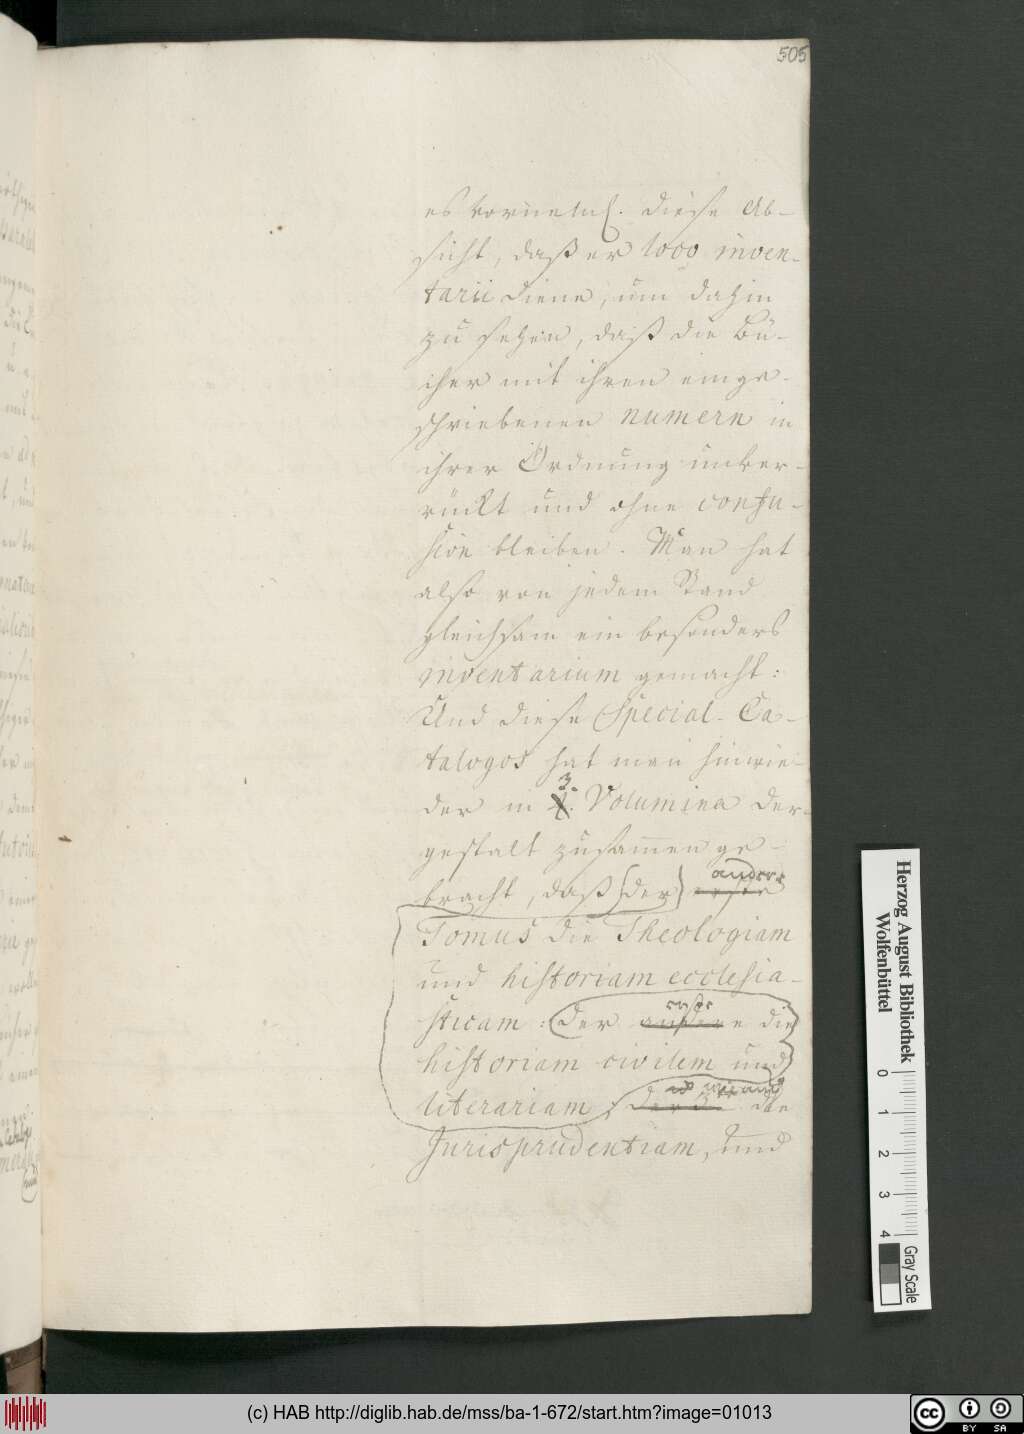 505
es vorneml. diese Ab-
sicht, daß er loco inven-
tarii diene, um dahin
zu sehen, daß die Bü-
cher mit ihren einge-
schriebenen numern in
ihrer Ordnung unver-
rückt und ohne confu-
sion bleiben. Man hat
also von jedem Stand
gleichsam ein besonders
inventarium gemacht:
Und diese Special-Ca-
talogos hat man hinwie-
der in 3. Volumina der-
gestalt zusammen ge-
bracht, daß der andere
Tomus die Theologiam
und historiam ecclesia-
sticam: der erste die
historiam civilem und
literariam, die
Jurisprudentiam, und
Herzog August Bibliothek
Wolfenbüttel
0 1 2 3 4
Gray Scale
(c) HAB http://diglib.hab.de/mss/ba-1-672/start.htm?image=01013
cc BY SA